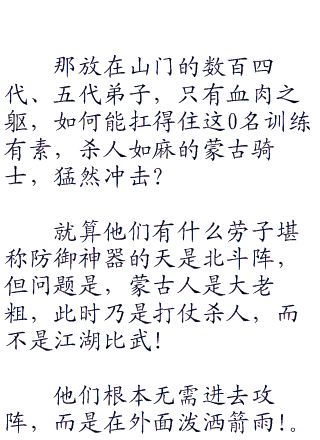 那放在山门的数百四
代、五代弟子，只有血肉之
躯，如何能扛得住这0名训练
有素，杀人如麻的蒙古骑
士，猛然冲击？
就算他们有什么劳子堪
称防御神器的天是北斗阵，
但问题是，蒙古人是大老
粗，此时乃是打仗杀人，而
不是江湖比武！
他们根本无需进去攻
阵，而是在外面泼洒箭雨！。